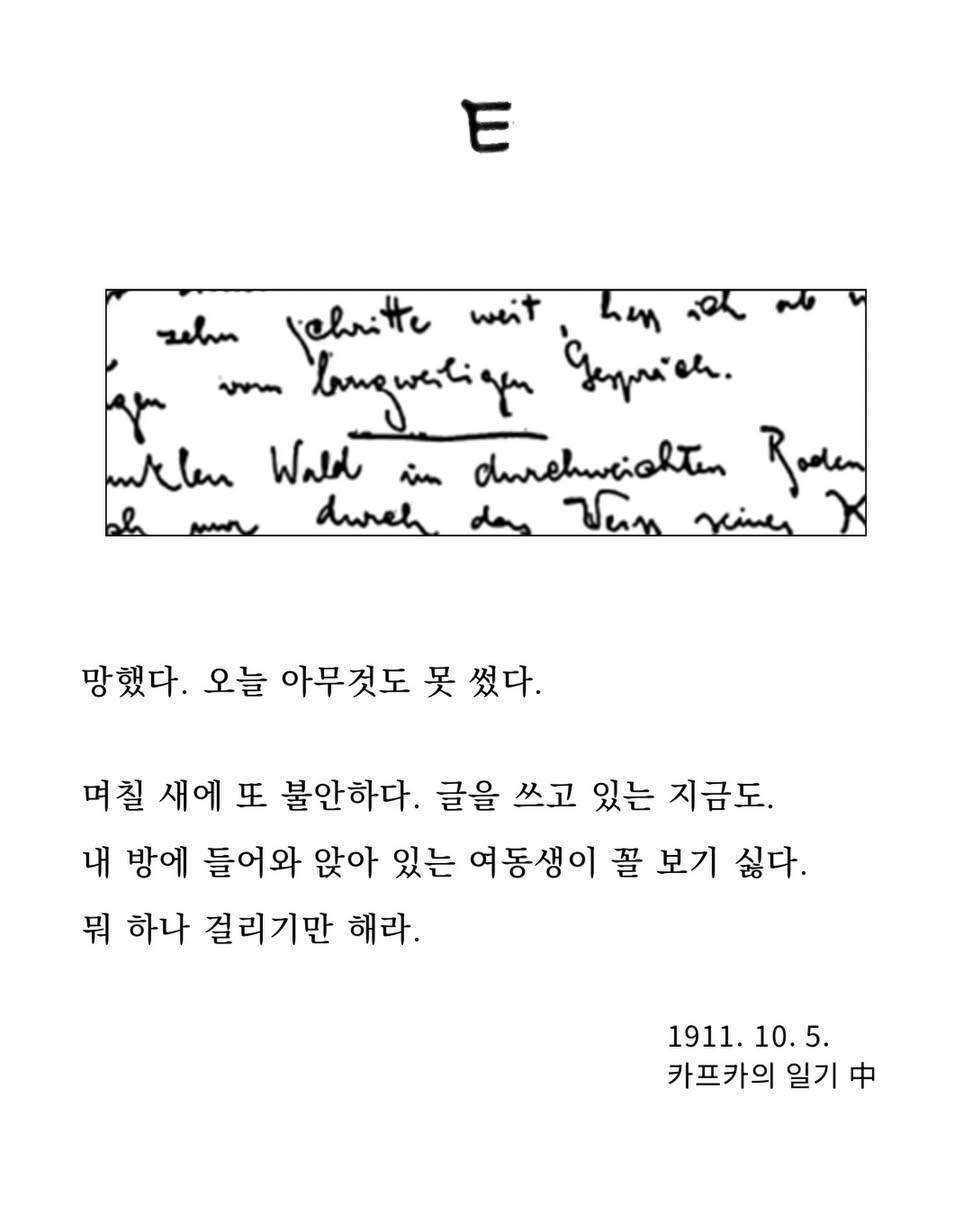 E
zehn Schritte weit, hess ich ab
gen vom langweiligen Gespräch.
Wald im durchweichten Boden
nur durch das Weiss seines K
망했다. 오늘 아무것도 못 썼다.
며칠 새에 또 불안하다. 글을 쓰고 있는 지금도.
내 방에 들어와 앉아 있는 여동생이 꼴 보기 싫다.
뭐 하나 걸리기만 해라.
1911. 10. 5.
카프카의 일기 中